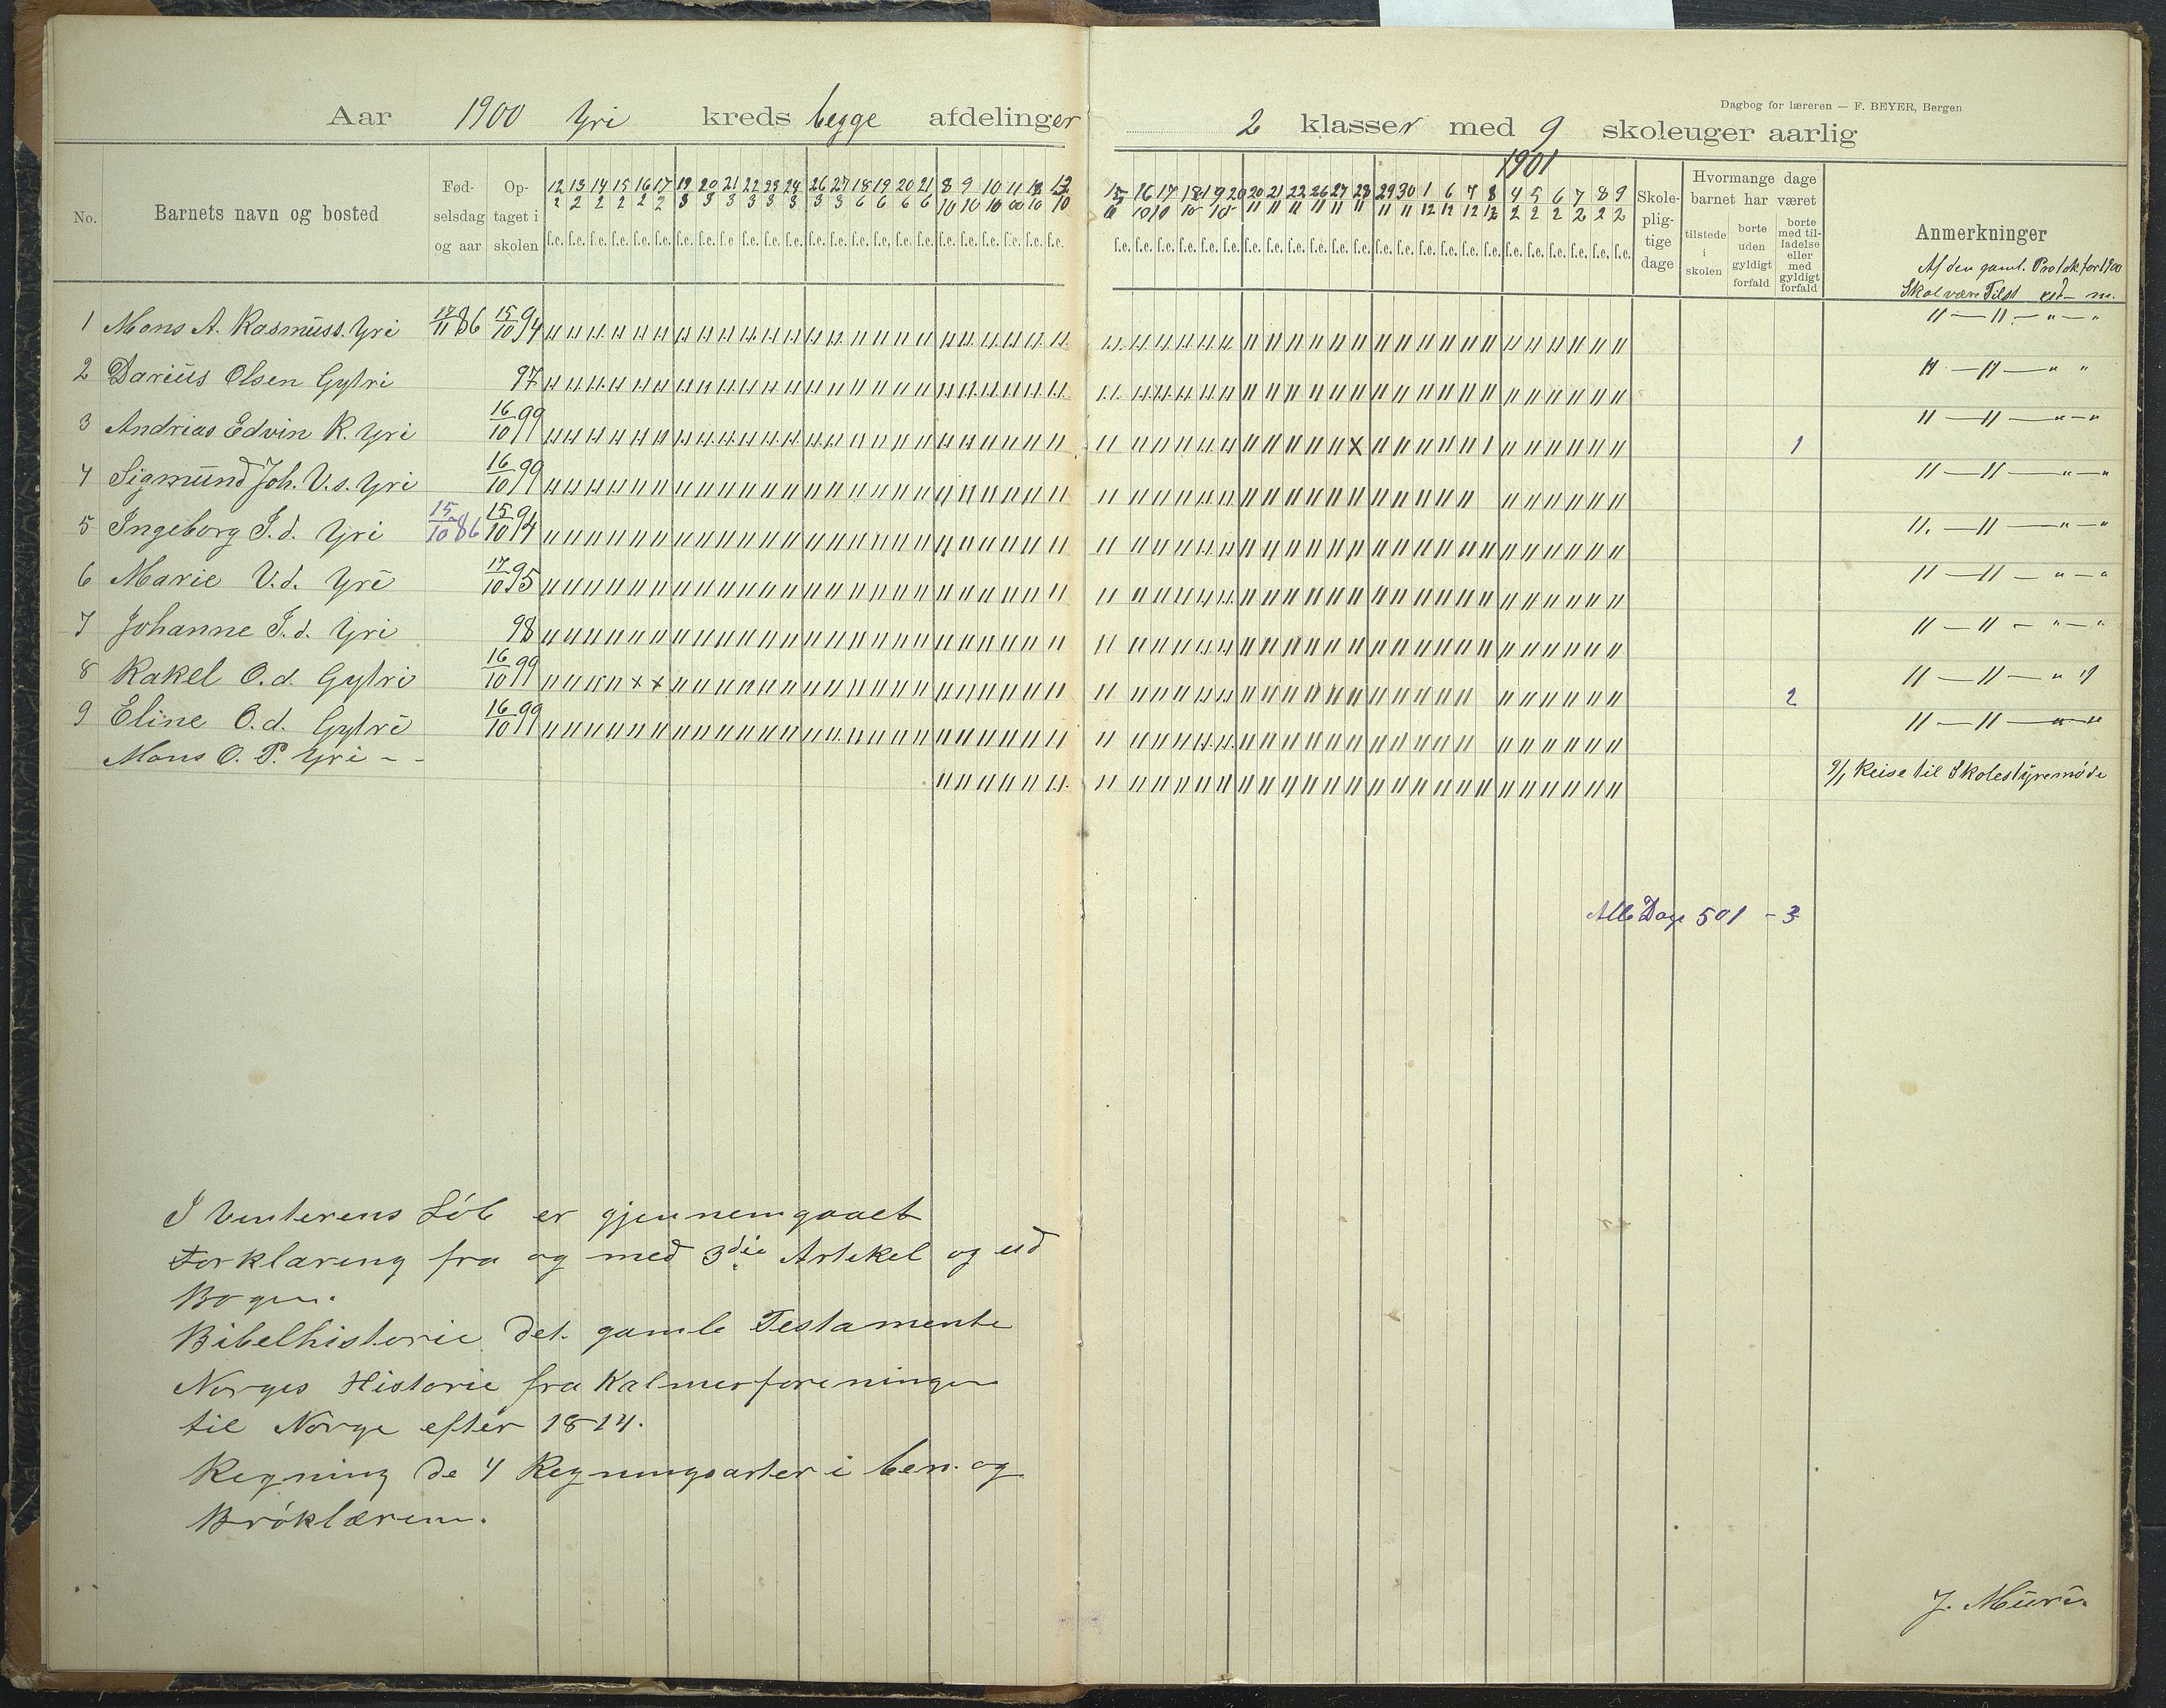 Dagbog for læreren — F. BEYER, Bergen
Aar 1900 Yri kreds begge afdelinger 2 klasser med 9 skoleuger aarlig
1901
No. Barnets navn og bosted Fød-selsdag og aar Op-taget i skolen
12/2 13/2 14/2 15/2 16/2 17/2 19/3 20/3 21/3 22/3 23/3 24/3 26/3 27/3 18/6 19/6 20/6 21/6 8/10 9/10 10/10 11/10 12/10 13/10
15/10 16/10 17/10 18/10 19/10 20 20/11 21/11 22/11 26/11 27/11 28/11 29/11 30/11 1/12 6/12 7/12 8/12 4/2 5/2 6/2 7/2 8/2 9/2
f.e. f.e. f.e. f.e. f.e. f.e. f.e. f.e. f.e. f.e. f.e. f.e. f.e. f.e. f.e. f.e. f.e. f.e. f.e. f.e. f.e. f.e. f.e. f.e.
f.e. f.e. f.e. f.e. f.e. f.e. f.e. f.e. f.e. f.e. f.e. f.e. f.e. f.e. f.e. f.e. f.e. f.e. f.e. f.e. f.e. f.e. f.e. f.e.
Skole-plig-tige dage
Hvormange dage barnet har været
tilstede i skolen
borte uden gyldigt forfald
borte med til-ladelse eller med gyldigt forfald
Anmerkninger
Af den gaml. Protok for 1900
Skol være Tilst
1 Mons A. Rasmuss. Yri 17/11 86 15/10 94
2 Darius Olsen Gytri 97
3 Andrias Edvin R. Yri 16/10 99 x 1
4 Sigmund Joh. V.s. Yri 16/10 99
5 Ingeborg I.d. Yri 15/10 86 15/10 94
6 Marie V.d. Yri 17/10 95
7 Johanne I.d. Yri 98
8 Rakel O.d. Gytri 16/10 99 x x 2
9 Eline O.d. Gytri 16/10 99
Mons O. P. Yri - -
9/1 Reise til Skolestyremøde
Alle Dage 501 - 3
I Vinterens Løb er gjennemgaaet
Forklaring fra og med 3die Artikel og ud
Bogen.
Bibelhistorie det gamle Testamente
Norges Historie fra Kalmerforeningen
til Norge efter 1814.
Regning de 4 Regningsarter i ben. og
Brøklæren.
J. Muri.